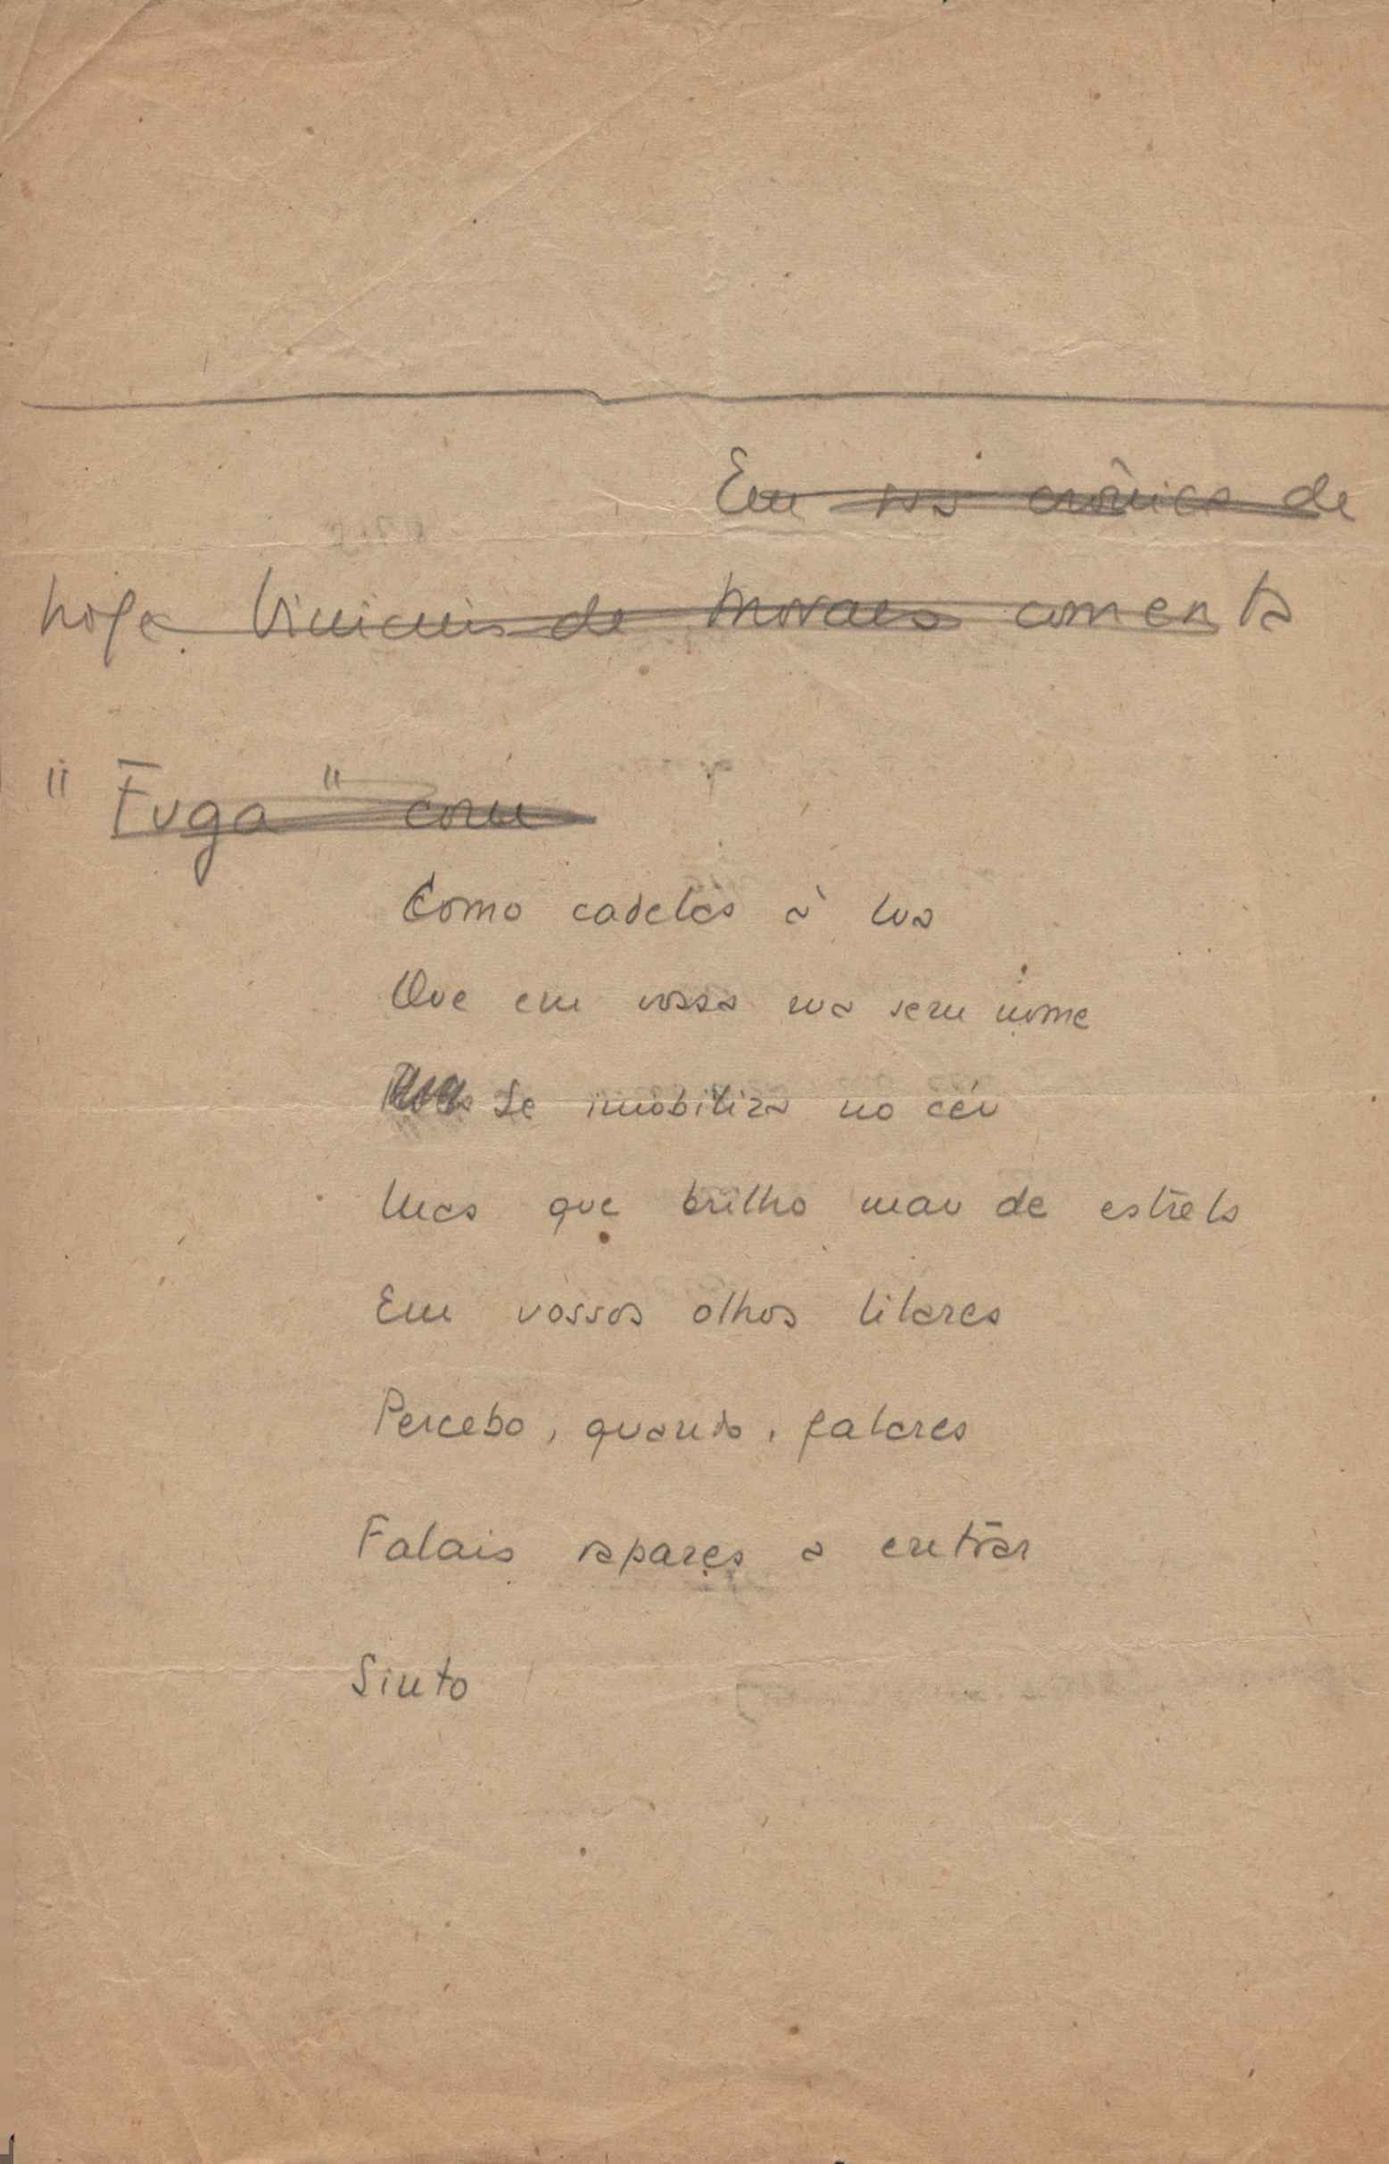 Em sua crônica de
hoje Vinicius de Moraes comenta
"Fuga" com
Como cadelas à lua
Que em vossa rua sem nome
Se imobiliza no céu
Mas que brilho mau de estrela
Em vossos olhos lilares
Percebo, quando, falares
Falais rapazes a entrar
Sinto